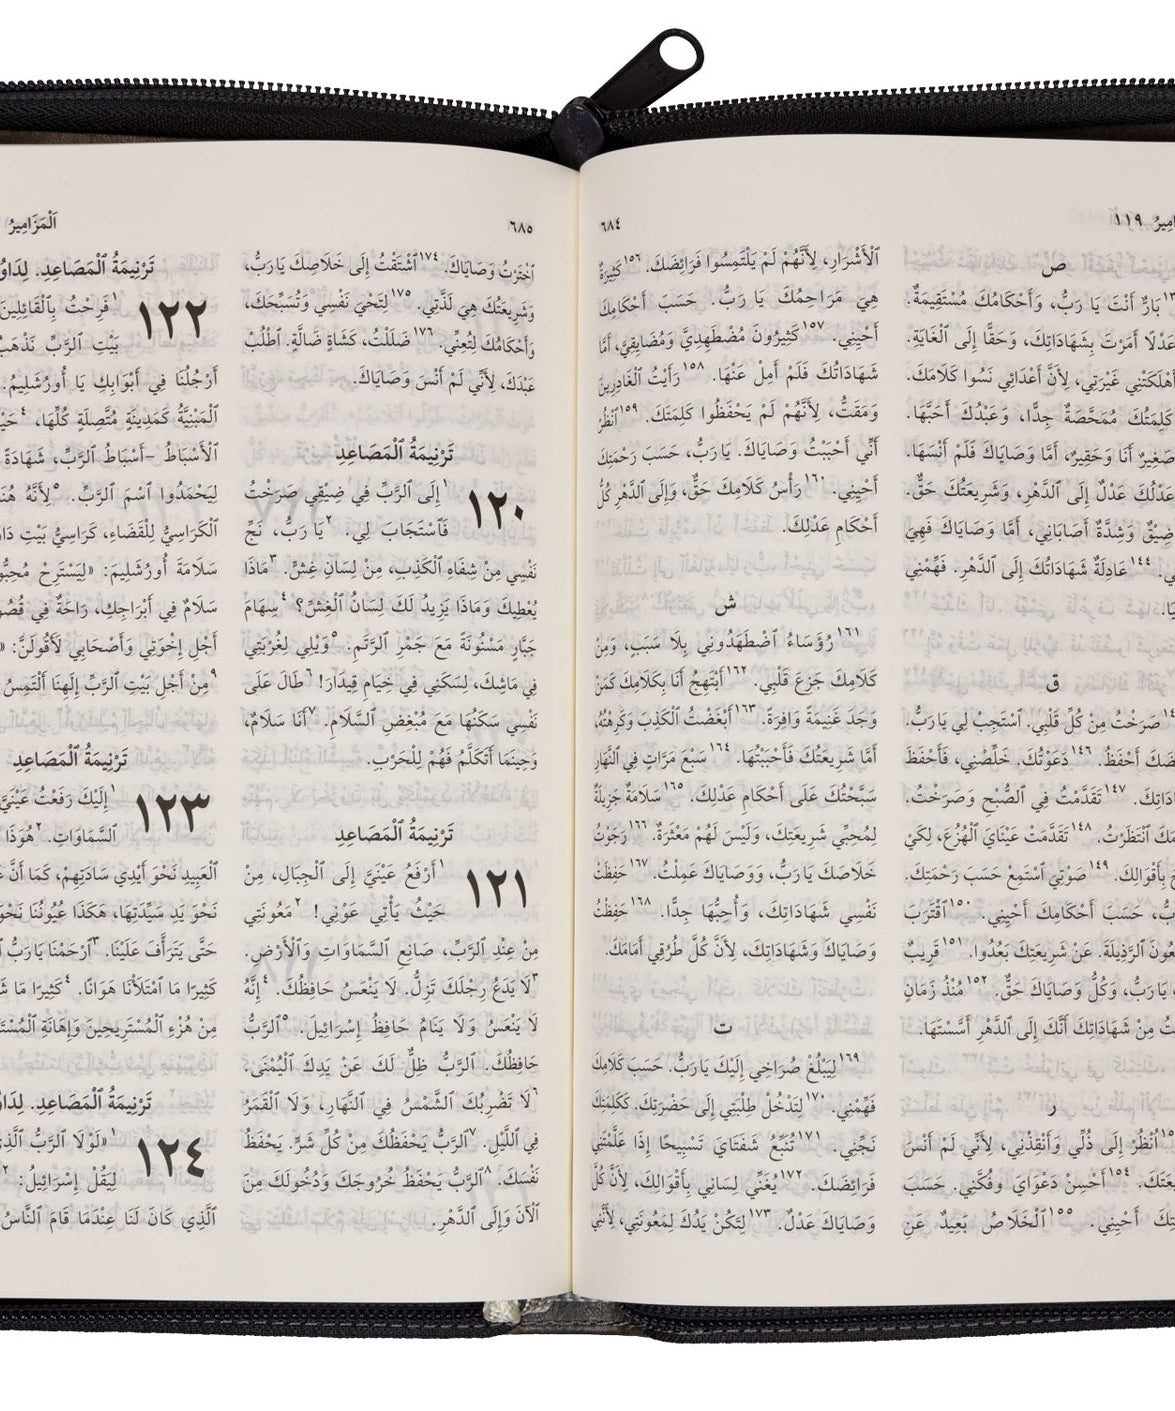 ١١٩
٦٨٤
ص
بَارٌّ أَنْتَ يَا رَبُّ، وَأَحْكَامُكَ مُسْتَقِيمَةٌ.
عَدْلًا أَمَرْتَ بِشَهَادَاتِكَ، وَحَقًّا إِلَى الْغَايَةِ.
أَهْلَكَتْنِي غَيْرَتِي، لِأَنَّ أَعْدَائِي نَسُوا كَلَامَكَ.
كَلِمَتُكَ مُمَحَّصَةٌ جِدًّا، وَعَبْدُكَ أَحَبَّهَا.
صَغِيرٌ أَنَا وَحَقِيرٌ، أَمَّا وَصَايَاكَ فَلَمْ أَنْسَهَا.
عَدْلُكَ عَدْلٌ إِلَى ٱلدَّهْرِ، وَشَرِيعَتُكَ حَقٌّ.
ضِيْقٌ وَشِدَّةٌ أَصَابَانِي، أَمَّا وَصَايَاكَ فَهِيَ
١٤٤ عَادِلَةٌ شَهَادَاتُكَ إِلَى ٱلدَّهْرِ. فَهِّمْنِي
ق
صَرَخْتُ مِنْ كُلِّ قَلْبِي. ٱسْتَجِبْ لِي يَارَبُّ.
أَحْفَظُ. ١٤٦ دَعَوْتُكَ. خَلِّصْنِي، فَأَحْفَظَ
١٤٧ تَقَدَّمْتُ فِي ٱلصُّبْحِ وَصَرَخْتُ.
ٱنْتَظَرْتُ. ١٤٨ تَقَدَّمَتْ عَيْنَايَ ٱلْهُزُعَ، لِكَيْ
بِأَقْوَالِكَ. ١٤٩ صَوْتِيَ ٱسْتَمِعْ حَسَبَ رَحْمَتِكَ.
حَسَبَ أَحْكَامِكَ أَحْيِنِي. ١٥٠ ٱقْتَرَبَ
ٱلرَّذِيلَةَ. عَنْ شَرِيعَتِكَ بَعُدُوا. ١٥١ قَرِيبٌ
يَارَبُّ، وَكُلُّ وَصَايَاكَ حَقٌّ. ١٥٢ مُنْذُ زَمَانٍ
مِنْ شَهَادَاتِكَ أَنَّكَ إِلَى ٱلدَّهْرِ أَسَّسْتَهَا.
ر
ٱنْظُرْ إِلَى ذُلِّي وَأَنْقِذْنِي، لِأَنِّي لَمْ أَنْسَ
١٥٤ أَحْسِنْ دَعْوَايَ وَفُكَّنِي. حَسَبَ
أَحْيِنِي. ١٥٥ ٱلْخَلَاصُ بَعِيدٌ عَنِ
ٱلْأَشْرَارِ، لِأَنَّهُمْ لَمْ يَلْتَمِسُوا فَرَائِضَكَ. ١٥٦ كَثِيرَةٌ
هِيَ مَرَاحِمُكَ يَا رَبُّ. حَسَبَ أَحْكَامِكَ
أَحْيِنِي. ١٥٧ كَثِيرُونَ مُضْطَهِدِيَّ وَمُضَايِقِيَّ، أَمَّا
شَهَادَاتُكَ فَلَمْ أَمِلْ عَنْهَا. ١٥٨ رَأَيْتُ ٱلْغَادِرِينَ
وَمَقَتُّ، لِأَنَّهُمْ لَمْ يَحْفَظُوا كَلِمَتَكَ. ١٥٩ ٱنْظُرْ
أَنِّي أَحْبَبْتُ وَصَايَاكَ. يَارَبُّ، حَسَبَ رَحْمَتِكَ
أَحْيِنِي. ١٦٠ رَأْسُ كَلَامِكَ حَقٌّ، وَإِلَى ٱلدَّهْرِ كُلُّ
أَحْكَامِ عَدْلِكَ.
ش
١٦١ رُؤَسَاءُ ٱضْطَهَدُونِي بِلَا سَبَبٍ، وَمِنْ
كَلَامِكَ جَزِعَ قَلْبِي. ١٦٢ أَبْتَهِجُ أَنَا بِكَلَامِكَ كَمَنْ
وَجَدَ غَنِيمَةً وَافِرَةً. ١٦٣ أَبْغَضْتُ ٱلْكَذِبَ وَكَرِهْتُهُ،
أَمَّا شَرِيعَتُكَ فَأَحْبَبْتُهَا. ١٦٤ سَبْعَ مَرَّاتٍ فِي ٱلنَّهَارِ
سَبَّحْتُكَ عَلَى أَحْكَامِ عَدْلِكَ. ١٦٥ سَلَامَةٌ جَزِيلَةٌ
لِمُحِبِّي شَرِيعَتِكَ، وَلَيْسَ لَهُمْ مَعْثَرَةٌ. ١٦٦ رَجَوْتُ
خَلَاصَكَ يَارَبُّ، وَوَصَايَاكَ عَمِلْتُ. ١٦٧ حَفِظَتْ
نَفْسِي شَهَادَاتِكَ، وَأُحِبُّهَا جِدًّا. ١٦٨ حَفِظْتُ
وَصَايَاكَ وَشَهَادَاتِكَ، لِأَنَّ كُلَّ طُرُقِي أَمَامَكَ.
ت
١٦٩ لِيَبْلُغْ صُرَاخِي إِلَيْكَ يَارَبُّ. حَسَبَ كَلَامِكَ
فَهِّمْنِي. ١٧٠ لِتَدْخُلْ طِلْبَتِي إِلَى حَضْرَتِكَ. كَكَلِمَتِكَ
نَجِّنِي. ١٧١ تُنَبِّعُ شَفَتَايَ تَسْبِيحًا إِذَا عَلَّمْتَنِي
فَرَائِضَكَ. ١٧٢ يُغَنِّي لِسَانِي بِأَقْوَالِكَ، لِأَنَّ كُلَّ
وَصَايَاكَ عَدْلٌ. ١٧٣ لِتَكُنْ يَدُكَ لِمَعُونَتِي، لِأَنَّنِي
٦٨٥
اَلْمَزَامِيرُ
ٱخْتَرْتُ وَصَايَاكَ. ١٧٤ ٱشْتَقْتُ إِلَى خَلَاصِكَ يَارَبُّ،
وَشَرِيعَتُكَ هِيَ لَذَّتِي. ١٧٥ لِتَحْيَ نَفْسِي وَتُسَبِّحَكَ،
وَأَحْكَامُكَ لِتُعِنِّي. ١٧٦ ضَلَلْتُ، كَشَاةٍ ضَالَّةٍ. ٱطْلُبْ
عَبْدَكَ، لِأَنِّي لَمْ أَنْسَ وَصَايَاكَ.
تَرْنِيمَةُ ٱلْمَصَاعِدِ
١٢٠
١ إِلَى ٱلرَّبِّ فِي ضِيْقِي صَرَخْتُ
فَٱسْتَجَابَ لِي. ٢ يَا رَبُّ، نَجِّ
نَفْسِي مِنْ شِفَاهِ ٱلْكَذِبِ، مِنْ لِسَانِ غِشٍّ. ٣ مَاذَا
يُعْطِيكَ وَمَاذَا يَزِيدُ لَكَ لِسَانُ ٱلْغِشِّ؟ ٤ سِهَامَ
جَبَّارٍ مَسْنُونَةً مَعَ جَمْرِ ٱلرَّتَمِ. ٥ وَيْلِي لِغُرْبَتِي
فِي مَاشِكَ، لِسَكَنِي فِي خِيَامِ قِيدَارَ! ٦ طَالَ عَلَى
نَفْسِي سَكَنُهَا مَعَ مُبْغِضِ ٱلسَّلَامِ. ٧ أَنَا سَلَامٌ،
وَحِينَمَا أَتَكَلَّمُ فَهُمْ لِلْحَرْبِ.
تَرْنِيمَةُ ٱلْمَصَاعِدِ
١٢١
١ أَرْفَعُ عَيْنَيَّ إِلَى ٱلْجِبَالِ، مِنْ
حَيْثُ يَأْتِي عَوْنِي! ٢ مَعُونَتِي
مِنْ عِنْدِ ٱلرَّبِّ، صَانِعِ ٱلسَّمَاوَاتِ وَٱلْأَرْضِ.
٣ لَا يَدَعُ رِجْلَكَ تَزِلُّ. لَا يَنْعَسُ حَافِظُكَ. ٤ إِنَّهُ
لَا يَنْعَسُ وَلَا يَنَامُ حَافِظُ إِسْرَائِيلَ. ٥ ٱلرَّبُّ
حَافِظُكَ. ٱلرَّبُّ ظِلٌّ لَكَ عَنْ يَدِكَ ٱلْيُمْنَى.
٦ لَا تَضْرِبُكَ ٱلشَّمْسُ فِي ٱلنَّهَارِ، وَلَا ٱلْقَمَرُ
فِي ٱللَّيْلِ. ٧ ٱلرَّبُّ يَحْفَظُكَ مِنْ كُلِّ شَرٍّ. يَحْفَظُ
نَفْسَكَ. ٨ ٱلرَّبُّ يَحْفَظُ خُرُوجَكَ وَدُخُولَكَ مِنَ
ٱلْآنَ وَإِلَى ٱلدَّهْرِ.
تَرْنِيمَةُ ٱلْمَصَاعِدِ.
١٢٢
١ فَرِحْتُ بِٱلْقَائِلِينَ
بَيْتِ ٱلرَّبِّ نَذْهَبُ
أَرْجُلُنَا فِي أَبْوَابِكِ يَا أُورُشَلِيمُ.
ٱلْمَبْنِيَّةُ كَمَدِينَةٍ مُتَّصِلَةٍ كُلِّهَا، ٤
ٱلْأَسْبَاطُ –أَسْبَاطُ ٱلرَّبِّ، شَهَادَةً
لِيَحْمَدُوا ٱسْمَ ٱلرَّبِّ. ٥ لِأَنَّهُ
ٱلْكَرَاسِيُّ لِلْقَضَاءِ، كَرَاسِيُّ بَيْتِ
سَلَامَةَ أُورُشَلِيمَ: «لِيَسْتَرِحْ
سَلَامٌ فِي أَبْرَاجِكِ، رَاحَةٌ فِي
أَجْلِ إِخْوَتِي وَأَصْحَابِي لَأَقُولَنَّ:
٩ مِنْ أَجْلِ بَيْتِ ٱلرَّبِّ إِلَهِنَا أَلْتَمِسُ
تَرْنِيمَةُ ٱلْمَصَاعِدِ
١٢٣
١ إِلَيْكَ رَفَعْتُ عَيْنَيَّ
ٱلسَّمَاوَاتِ. ٢ هُوَذَا
ٱلْعَبِيدِ نَحْوَ أَيْدِي سَادَتِهِمْ، كَمَا أَنَّ
نَحْوَ يَدِ سَيِّدَتِهَا، هَكَذَا عُيُونُنَا نَحْوَ
حَتَّى يَتَرَأَّفَ عَلَيْنَا. ٣ ٱرْحَمْنَا يَارَبُّ
كَثِيرًا مَا ٱمْتَلَأْنَا هَوَانًا. ٤ كَثِيرًا مَا
مِنْ هُزْءِ ٱلْمُسْتَرِيحِينَ وَإِهَانَةِ
تَرْنِيمَةُ ٱلْمَصَاعِدِ.
١٢٤
١ «لَوْلَا ٱلرَّبُّ
لِيَقُلْ إِسْرَائِيلُ: ٢
ٱلَّذِي كَانَ لَنَا عِنْدَمَا قَامَ ٱلنَّاسُ